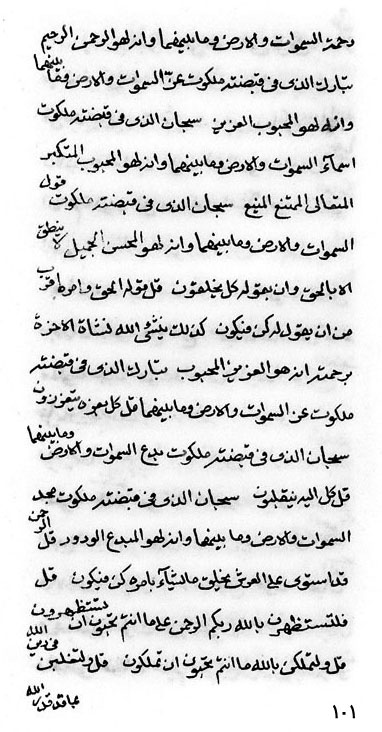 رحمة السموات والارض وما بينهما وانه لهو الرحمن الرحيم
تبارك الذى فى قبضته ملكوت عز السموات والارض وما بينهما
وانه لهو المحبوب العزيز سبحان الذى فى قبضته ملكوت
اسماء السموات والارض وما بينهما وانه لهو المحبوب المتكبر
المتعالى الممتنع المنيع سبحان الذى فى قبضته ملكوت قول
السموات والارض وما بينهما وانه لهو المحسن الجميل لا ينطق
الا بالحق وان بقوله كل يخلقون قل قوله الحق وامره اقرب
من ان يقول له كن فيكون كذلك ينشئ الله نشاة الاخرة
برحمته انه هو العزيز المحبوب تبارك الذى فى قبضته
ملكوت عز السموات والارض وما بينهما قل كل بعزه يتعززون
سبحان الذى فى قبضته ملكوت مبدع السموات والارض وما بينهما
قل كل اليه ينقلبون سبحان الذى فى قبضته ملكوت مجد
السموات والارض وما بينهما وانه لهو المبدع الودود قل الرحمن
قد استوى على العرش يخلق ما يشآء بامره كن فيكون قل
فلتستظهرن بالله ربكم الرحمن على ما انتم تحبون ان تستظهرون
قل ولتملكن بالله ما انتم تحبون ان تملكون قل ولتغلبن فى دين الله
بما قد الله
١٠١